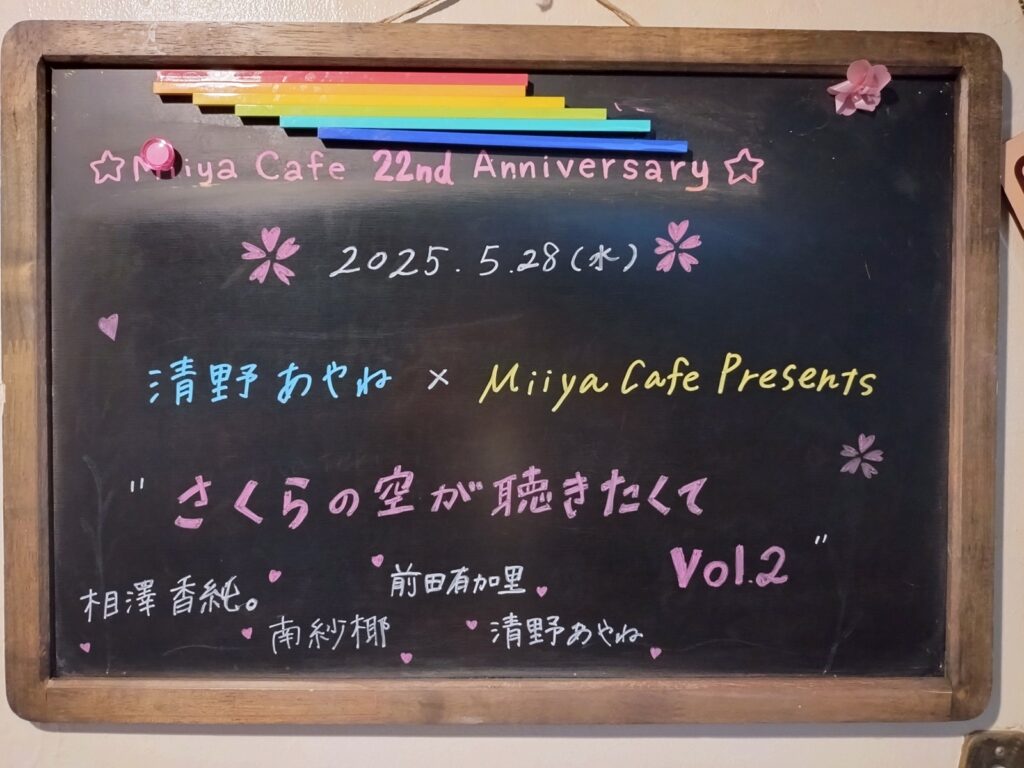 ☆Miiya Cafe 22nd Anniversary☆
2025.5.28(水)
清野あやね × Miiya Cafe Presents
"さくらの空が聴きたくて
Vol.2"
相澤香純。 前田有加里
南紗椰 清野あやね